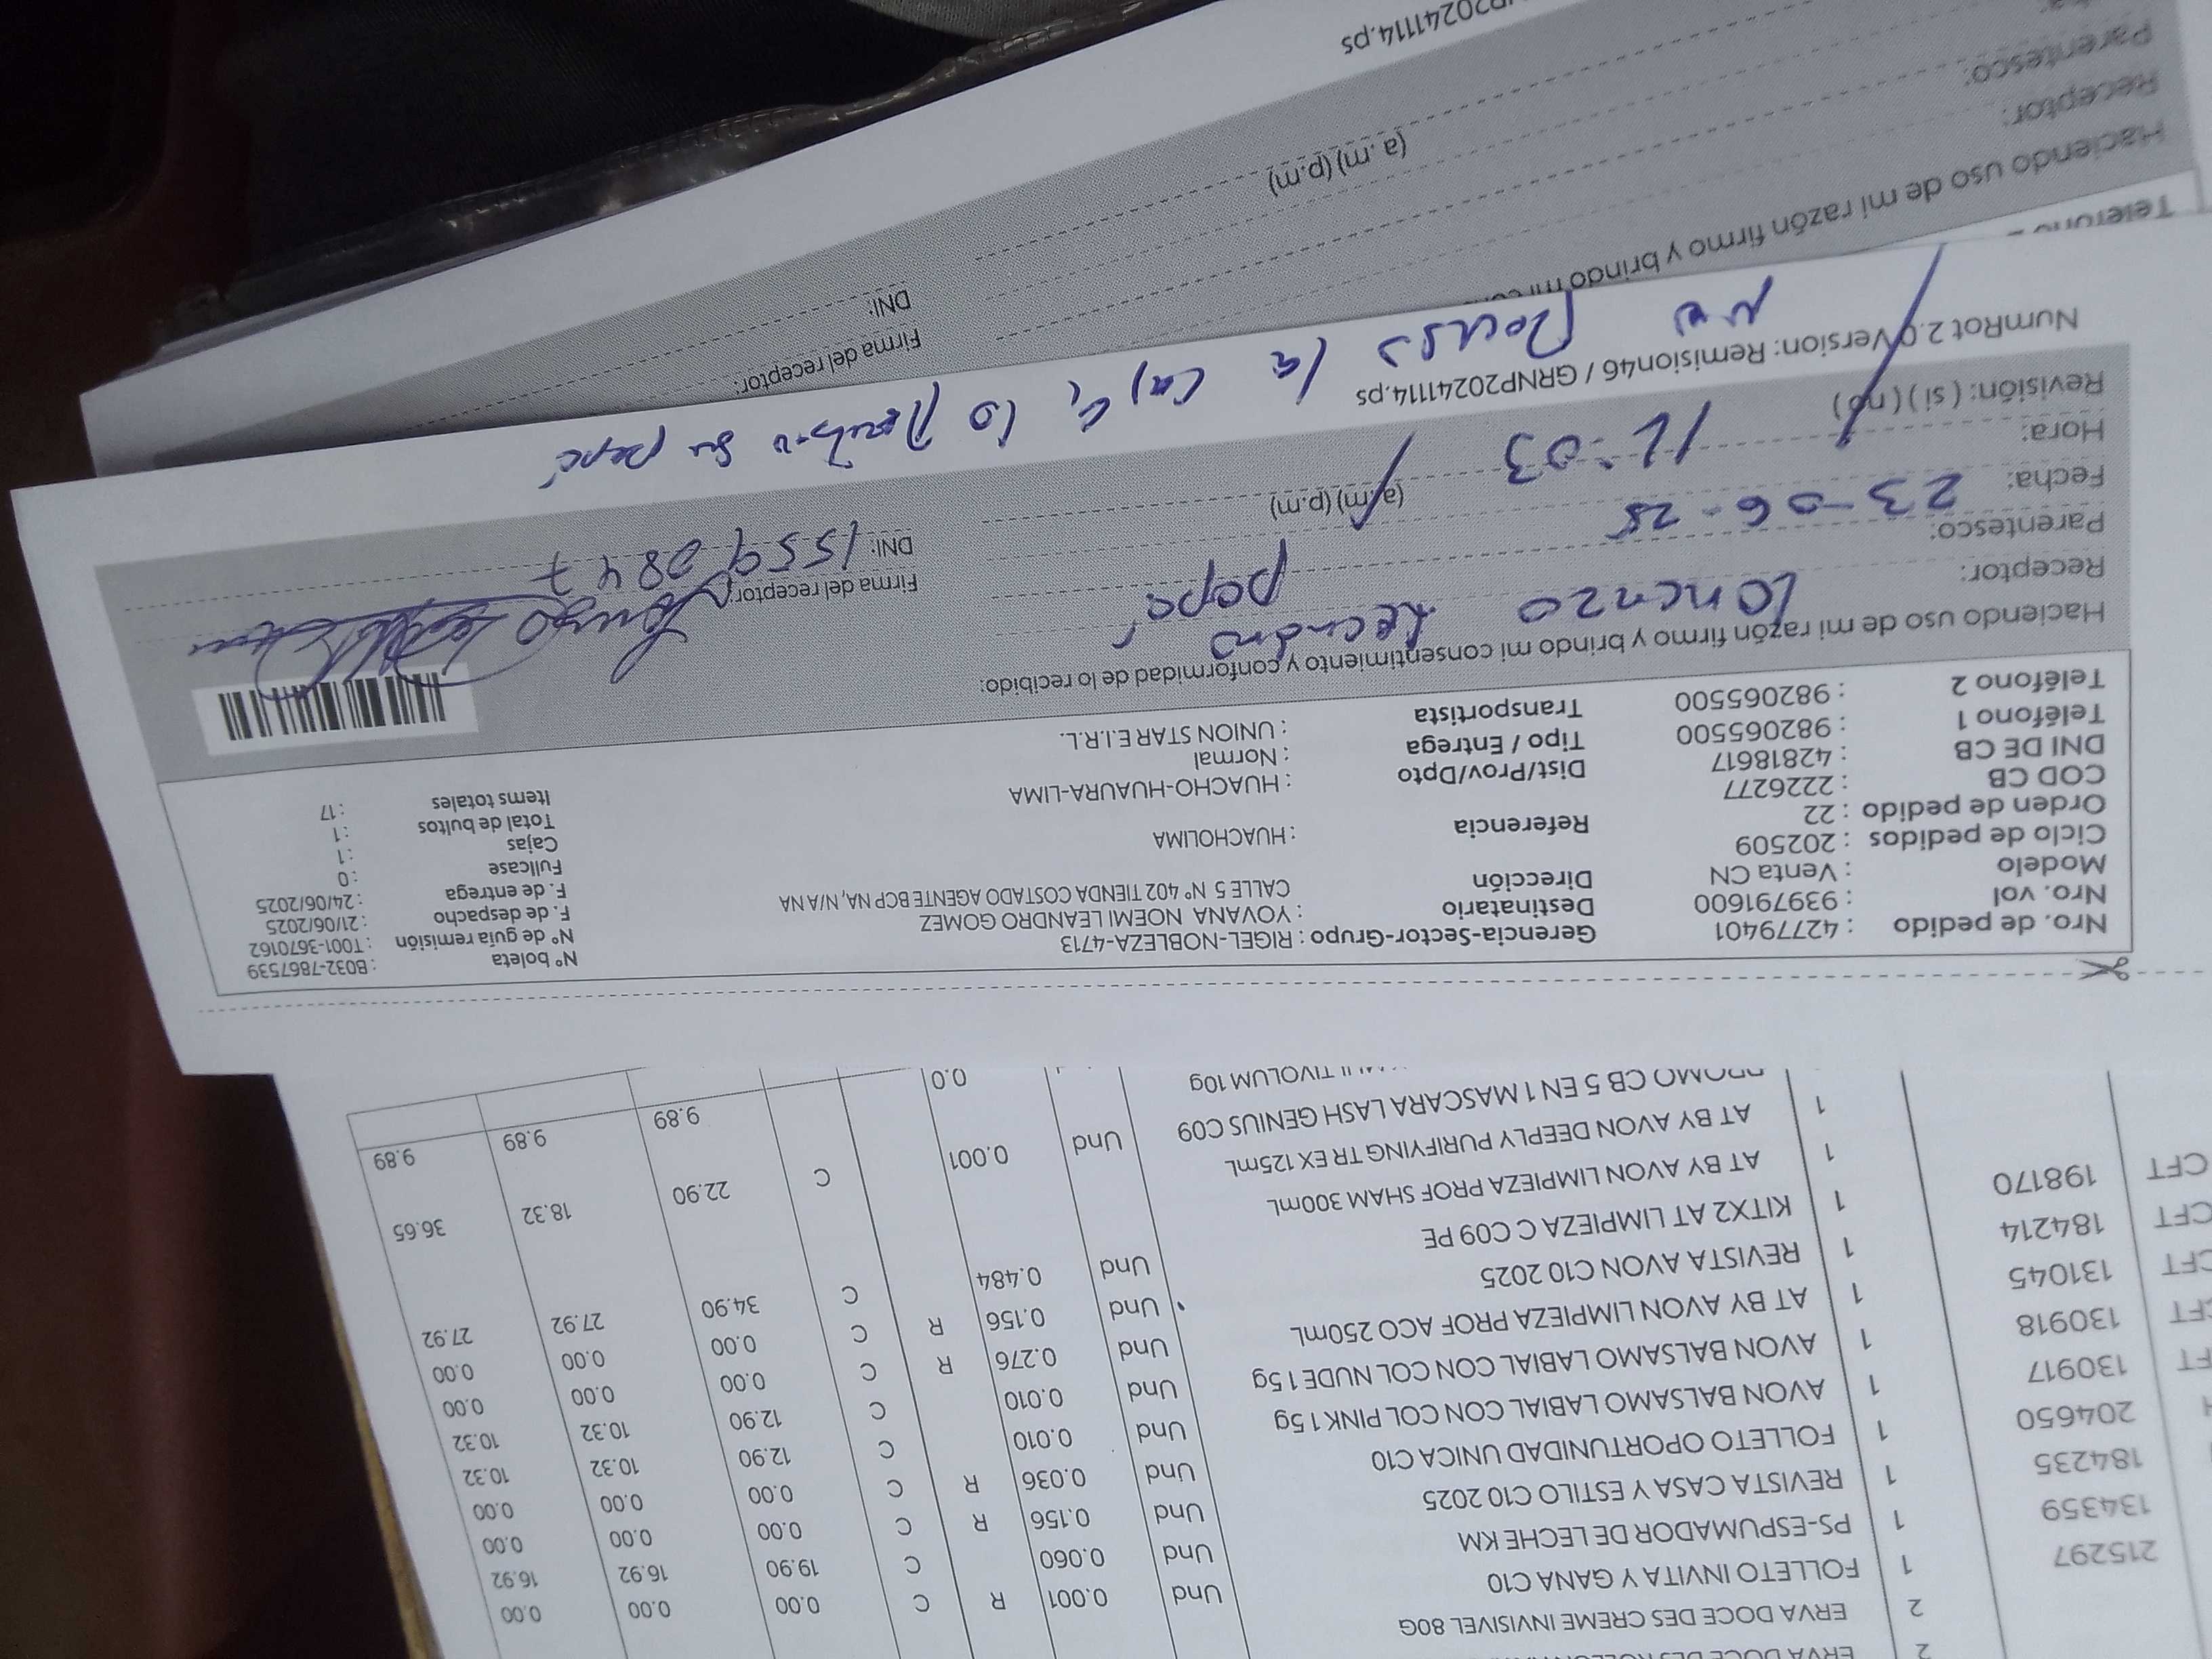 ERVA DOCE DES
2 ERVA DOCE DES CREME INVISIVEL 80G Und 0.001 R C 0.00 0.00 0.00
215297 1 FOLLETO INVITA Y GANA C10 Und 0.060 C 19.90 16.92 16.92
134359 1 PS-ESPUMADOR DE LECHE KM Und 0.156 R C 0.00 0.00 0.00
184235 1 REVISTA CASA Y ESTILO C10 2025 Und 0.036 R C 0.00 0.00 0.00
204650 1 FOLLETO OPORTUNIDAD UNICA C10 Und 0.010 C 12.90 10.32 10.32
130917 1 AVON BALSAMO LABIAL CON COL PINK 15g Und 0.010 C 12.90 10.32 10.32
CFT 130918 1 AVON BALSAMO LABIAL CON COL NUDE 15g Und 0.276 R C 0.00 0.00 0.00
CFT 131045 1 AT BY AVON LIMPIEZA PROF ACO 250mL Und 0.156 R C 0.00 0.00 0.00
CFT 184214 1 REVISTA AVON C10 2025 Und 0.484 C 34.90 27.92 27.92
CFT 198170 1 KITX2 AT LIMPIEZA C C09 PE
1 AT BY AVON LIMPIEZA PROF SHAM 300mL C 22.90 18.32 36.65
1 AT BY AVON DEEPLY PURIFYING TR EX 125mL Und 0.001
PROMO CB 5 EN 1 MASCARA LASH GENIUS C09 9.89 9.89 9.89
MULTIVOLUM 10g 0.0
Nro. de pedido : 42779401 Gerencia-Sector-Grupo : RIGEL-NOBLEZA-4713 N° boleta : B032-7867539
Nro. vol : 939791600 Destinatario : YOVANA NOEMI LEANDRO GOMEZ N° de guía remisión : T001-3670162
Modelo : Venta CN Dirección CALLE 5 N° 402 TIENDA COSTADO AGENTE BCP NA, N/A NA F. de despacho : 21/06/2025
Ciclo de pedidos : 202509 F. de entrega : 24/06/2025
Orden de pedido : 22 Referencia : HUACHOLIMA Fullcase : 0
COD CB : 2226277 Cajas : 1
DNI DE CB : 42818617 Dist/Prov/Dpto : HUACHO-HUAURA-LIMA Total de bultos : 1
Teléfono 1 : 982065500 Tipo / Entrega : Normal Items totales : 17
Teléfono 2 : 982065500 Transportista : UNION STAR E.I.R.L.
Haciendo uso de mi razón firmo y brindo mi consentimiento y conformidad de lo recibido:
Receptor: Lorenzo Leandro
Parentesco: papá Firma del receptor:
Fecha: 23-06-25 DNI: 15590847
Hora: 12:03 (a.m) (p.m)
Revisión: ( si ) ( no )
NumRot 2.0 Version: Remision46 / GRNP20241114.ps
No la caja, lo su papá
Teléfono 2
Haciendo uso de mi razón firmo y brindo mi
Receptor: Firma del receptor:
Parentesco: DNI:
(a. m) (p.m)
20241114.ps